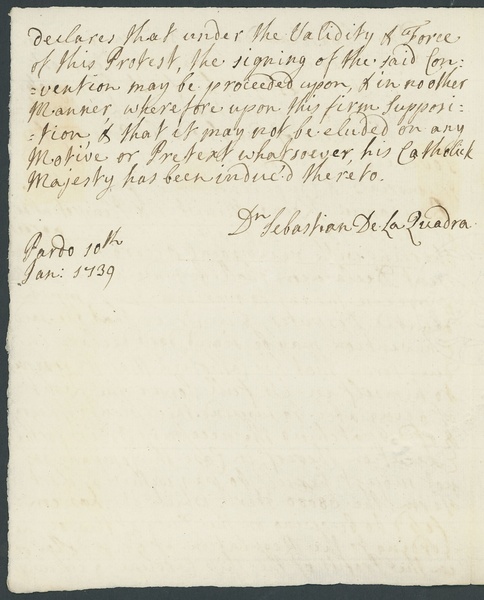 declares that under the Validity & Force
of this Protest, the signing of the said Con=
=vention may be proceeded upon, & in no other
Manner, wherefore upon this firm Supposi-
-tion, & that it may not be eluded on any
Motive or Pretext whatsoever, his Catholick
Majesty has been induc'd thereto.
Dn Sebastian De La Quadra.
Pardo 10th
Jan: 1739